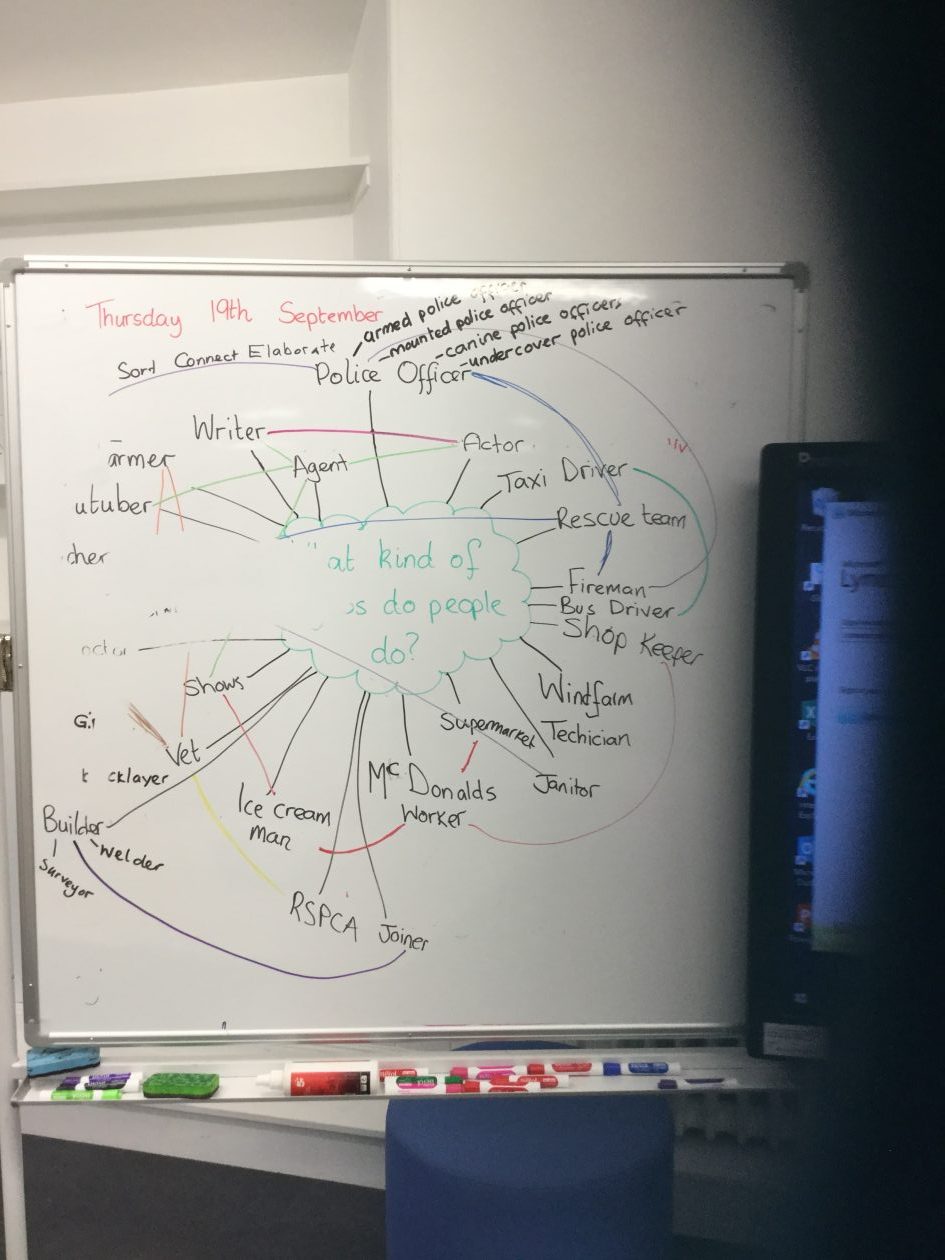 Thursday 19th September
Sort Connect Elaborate
armed police officer
mounted police officer
canine police officers
undercover police officer
Police Officer
Writer
Actor
armer
Agent
Taxi Driver
utuber
Rescue team
cher
at kind of
s do people
do?
Fireman
Bus Driver
Shop Keeper
Shows
Windfarm
Techician
Supermarket
Vet
cklayer
Mc Donalds
Worker
Janitor
Ice cream
man
Builder
Welder
Surveyor
RSPCA
Joiner